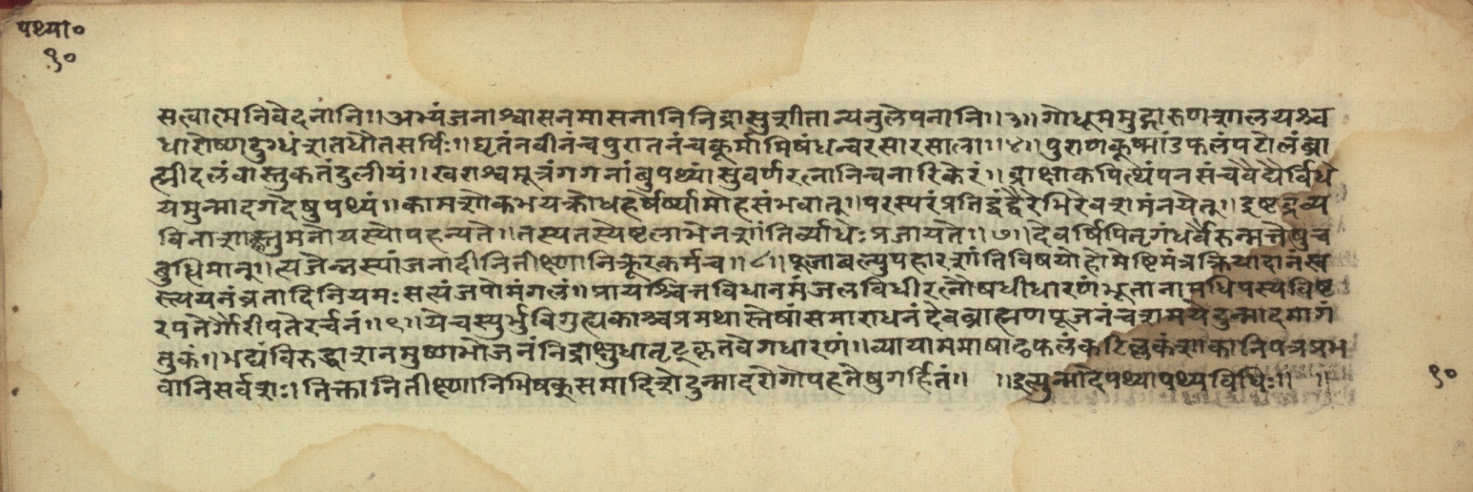 पथ्या०
१०
सत्वात्मनिवेदनानि॥अभ्यंजनाश्वासनमासनानिनिद्रासुशीतान्यनुलेपनानि॥३॥गोधूममुद्गारुणशालयश्च
धारोष्णदुग्धंशतधौतसर्पिः॥घृतंनवीनंचपुरातनंचकूर्मामिषंधन्वरसारसाला॥४॥पुराणकूष्मांडफलंपटोलंब्रा
ह्मीदलंवास्तुकतंदुलीयं॥खराश्वमूत्रंगगनांबुपथ्यासुवर्णरत्नानिचनारिकेरं॥द्राक्षाकपित्थंपनसंचवैद्यैर्विधे
यमुन्मादगदेषुपथ्यं॥कामशोकभयक्रोधहर्षेर्ष्यामोहसंभवात्॥परस्परंप्रतिद्वंद्वैरेभिरेवशमंनयेत्॥इष्टद्रव्य
विनाशात्तुमनोयस्योपहन्यते॥तस्यतस्येष्टलाभेनशांतिर्व्याधेःप्रजायते॥७॥देवर्षिपितृगंधर्वैरुन्मत्तेषुच
बुधिमान्॥त्यजेन्नस्यांजनादीनितीक्ष्णानिक्रूरकर्मच॥८॥पूजाबल्युपहारशांतिविषयोहोमेष्टिमंत्रक्रियादानंस्व
स्त्ययनंव्रतादिनियमःसत्यंजपोमंगलं॥प्रायश्चित्तविधानमंजलविधीरत्नौषधीधारणंभूतानामधिपस्यविष्ट
रपतेर्गौरीपतेरर्चनं॥९॥येचस्युर्भुविगुह्यकाश्चप्रमथास्तेषांसमाराधनंदेवब्राह्मणपूजनंचशमयेदुन्मादमागं
तुकं॥मद्यंविरुद्धाशनमुष्णभोजनंनिद्राक्षुधातृट्कृतवेगधारणं॥व्यायाममाषाढफलंकठिल्लकंशाकानिपत्रप्रभ
वानिसर्वशः।तिक्तानितीक्ष्णानिभिषक्समादिशेदुन्मादरोगोपहतेषुगर्हितं॥ ॥इत्युन्मादेपथ्यापथ्यविधिः॥ ॥
१०